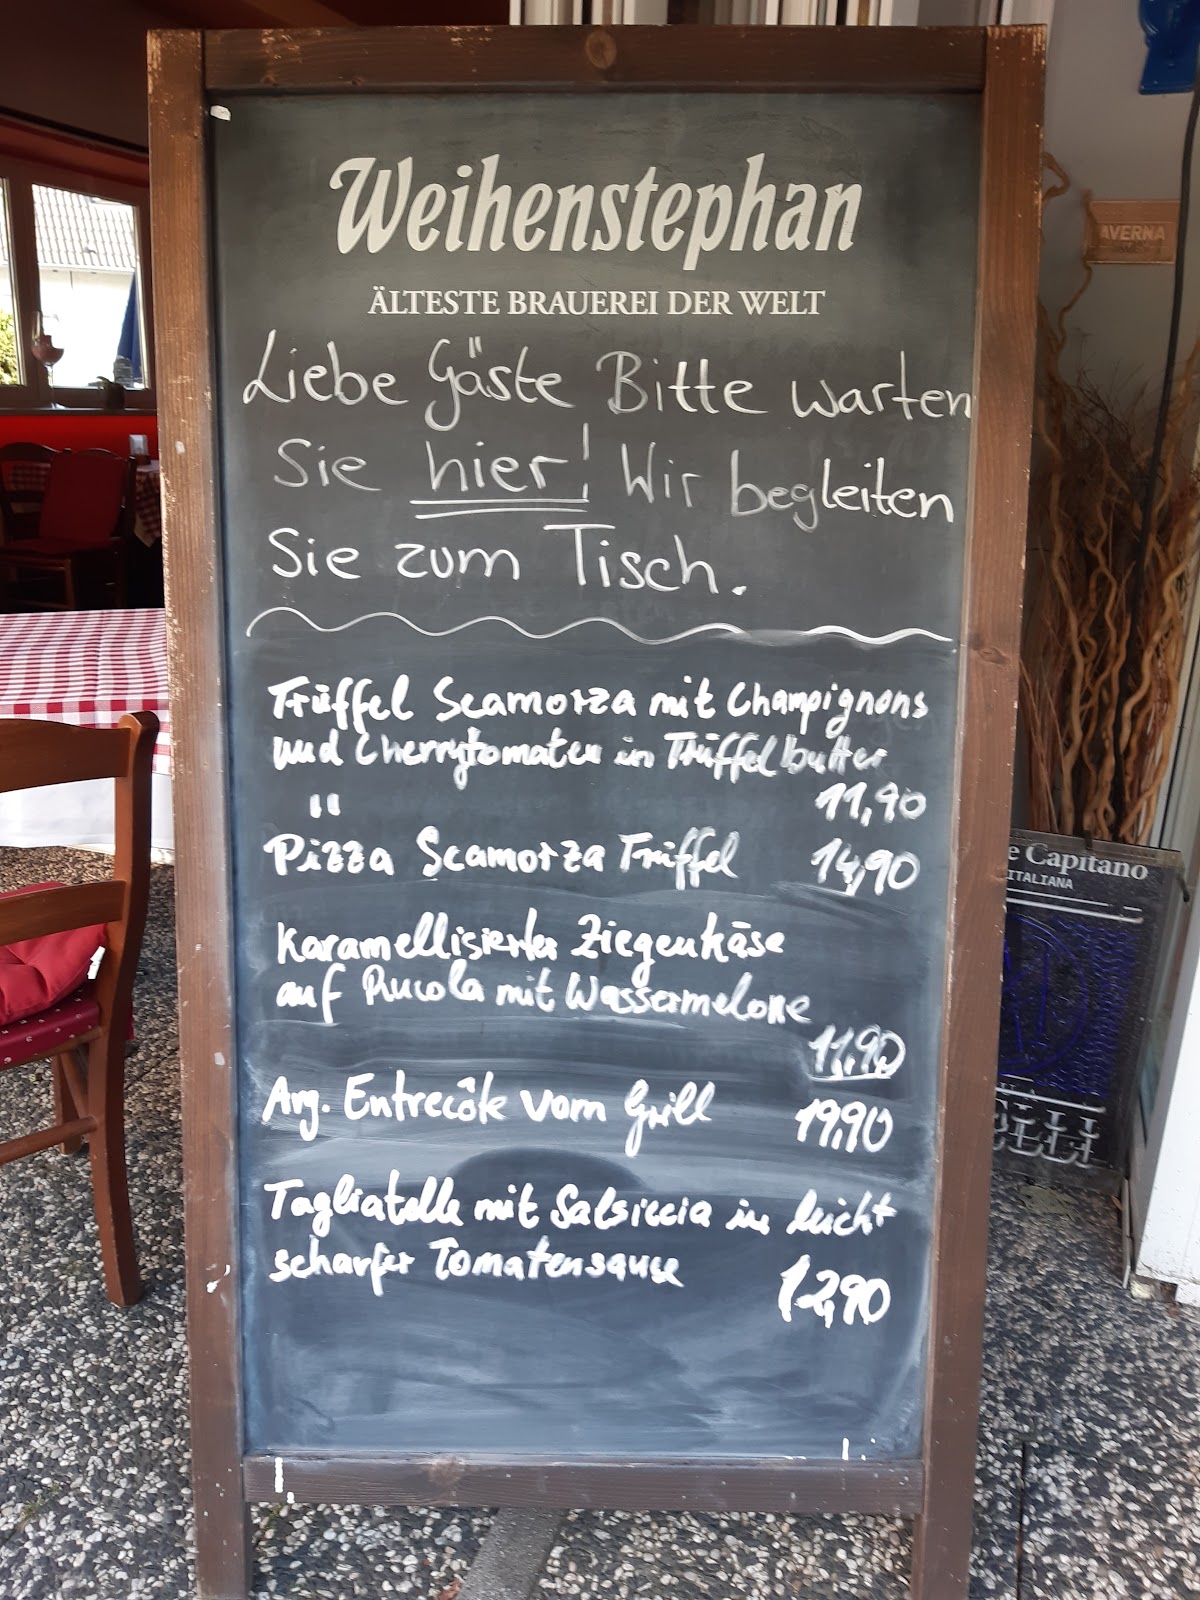 Weihenstephan
ÄLTESTE BRAUEREI DER WELT
Liebe Gäste Bitte warten
Sie hier! Wir begleiten
Sie zum Tisch.
Trüffel Scamorza mit Champignons
und Cherrytomaten in Trüffelbutter
" 11,90
Pizza Scamorza Trüffel 14,90
Karamellisierter Ziegenkäse
auf Rucola mit Wassermelone
11,90
Arg. Entrecôte vom Grill 19,90
Tagliatelle mit Salsiccia in leicht
scharfer Tomatensauce
12,90
AVERNA
e Capitano
ITALIANA